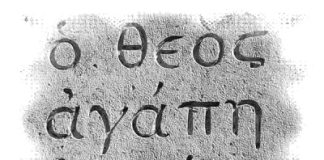 ὁ θεος
ἀγάπη